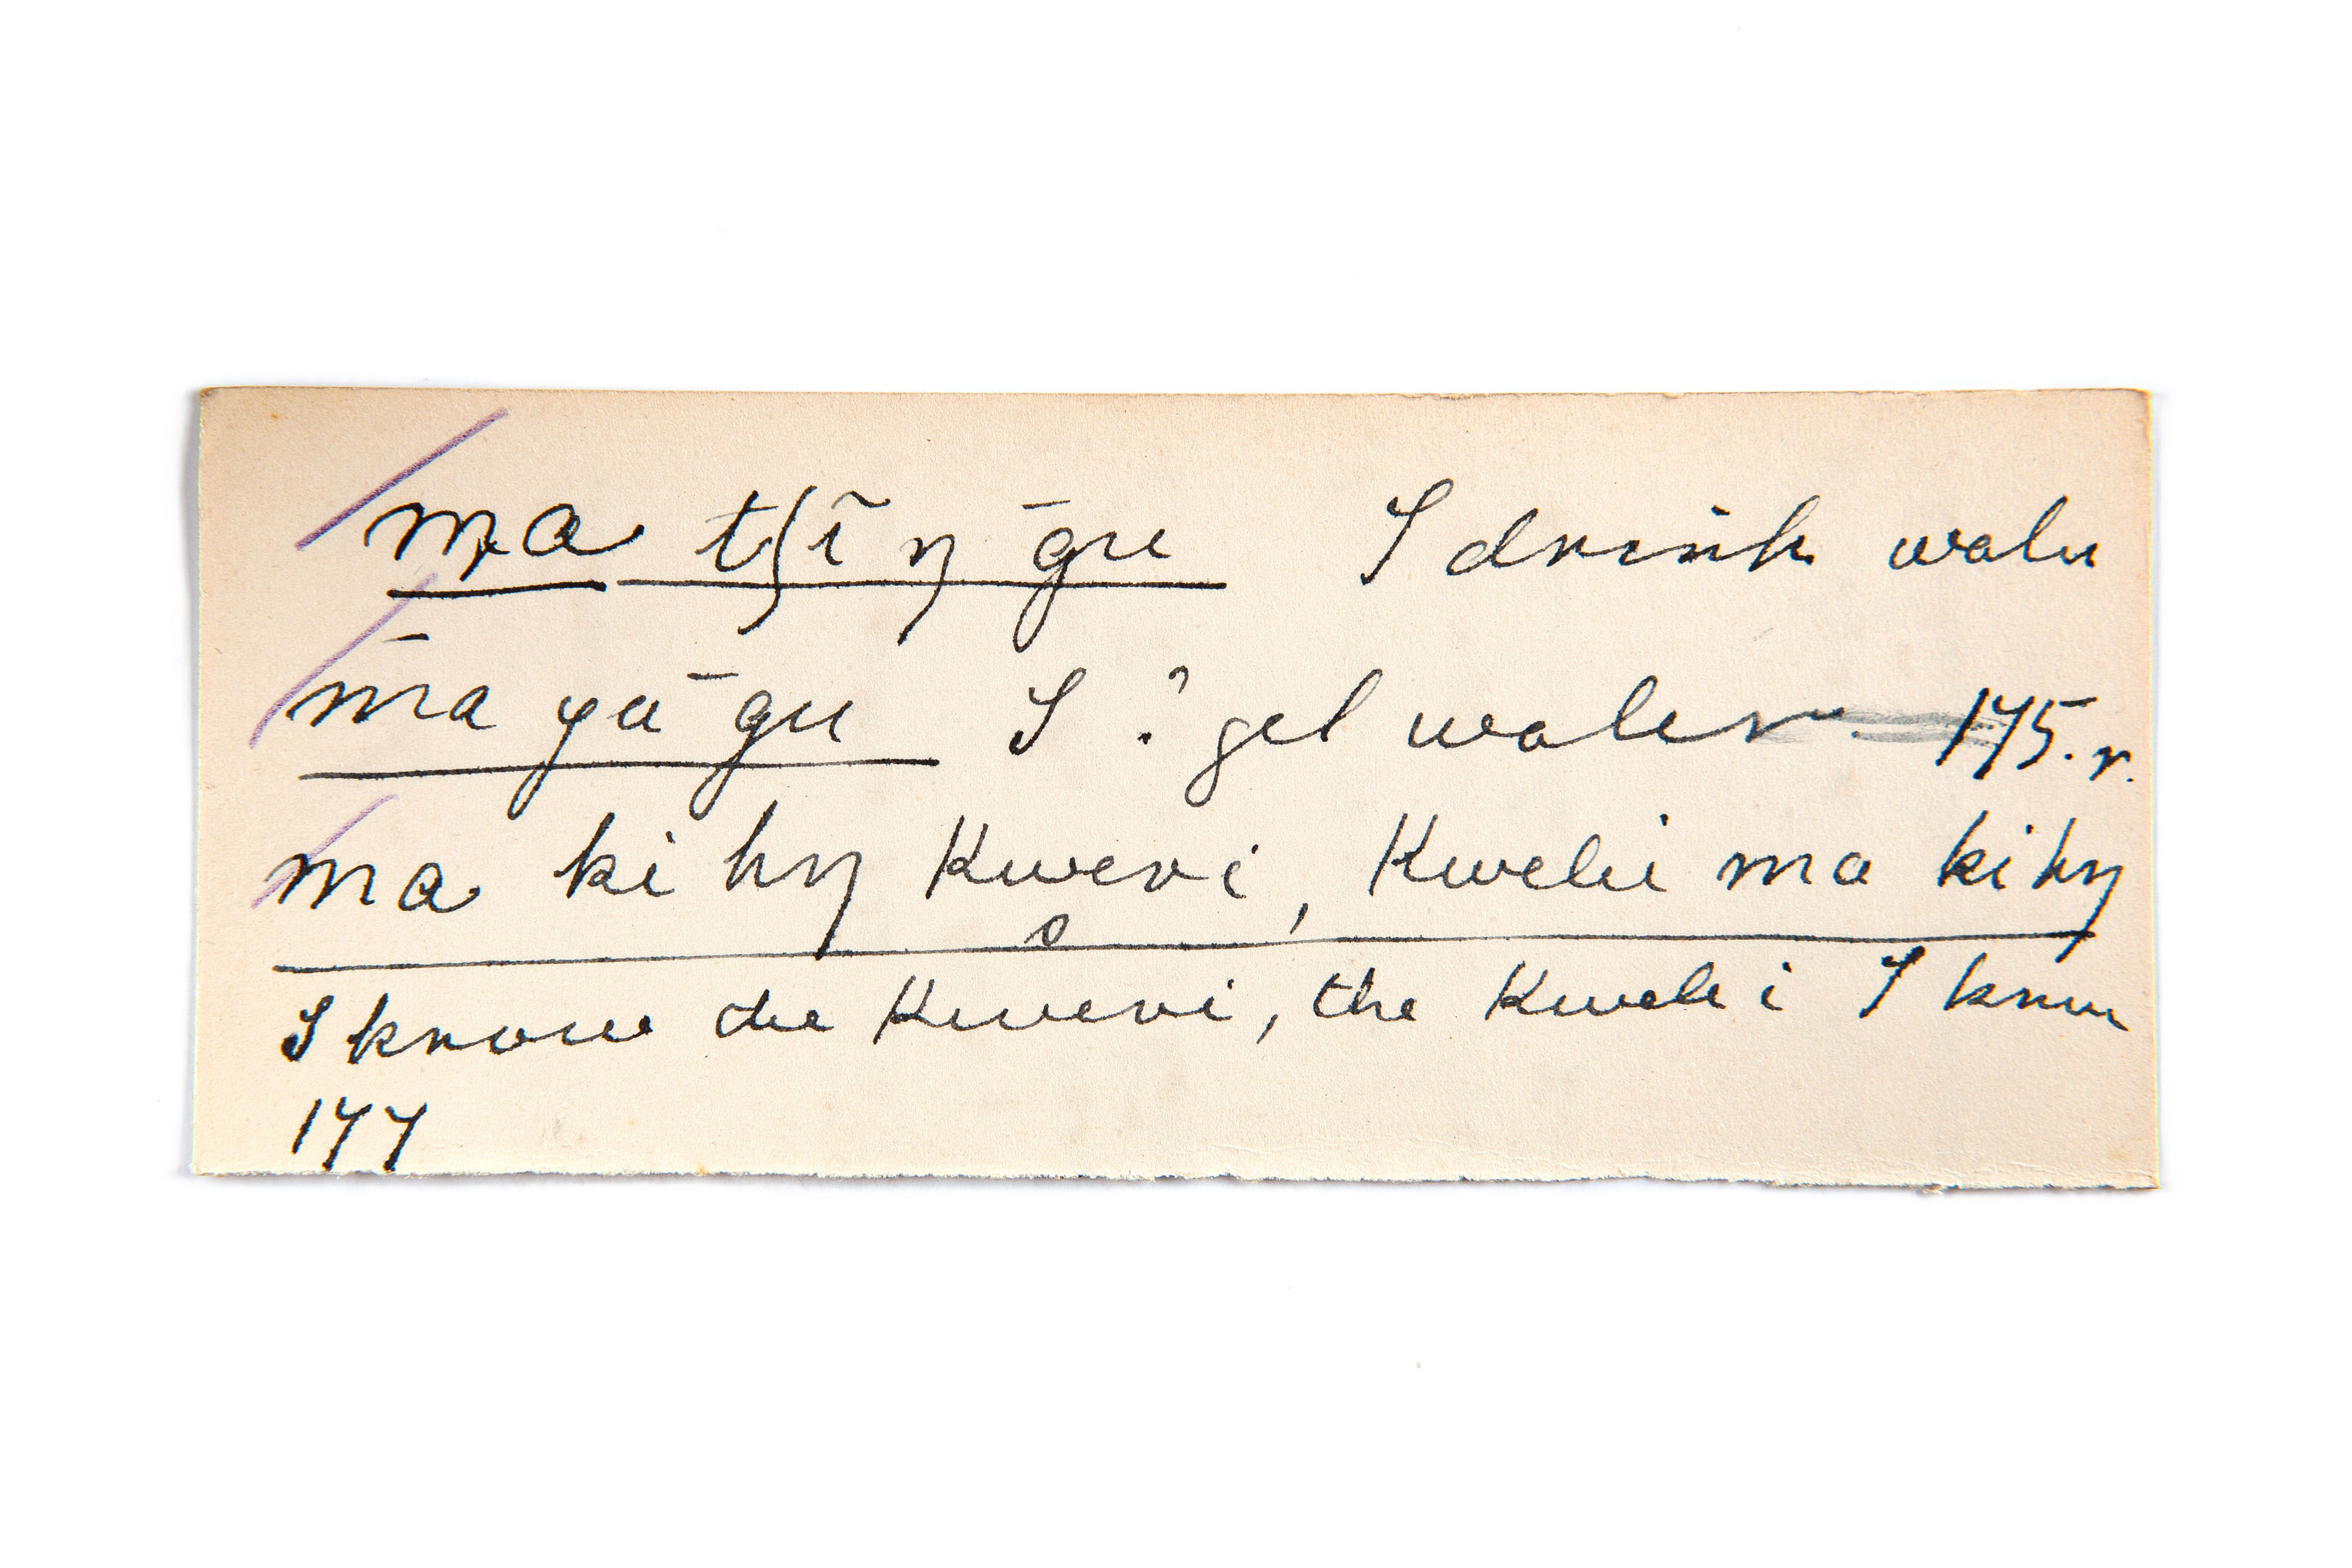 ma tʃĩŋ ḡu I drink water
m̄a ya ḡu I ? get water 175. r.
ma ki hŋ Kwevi, Kwelii ma ki hŋ
I know the Kwevi, the Kwelei I know
177